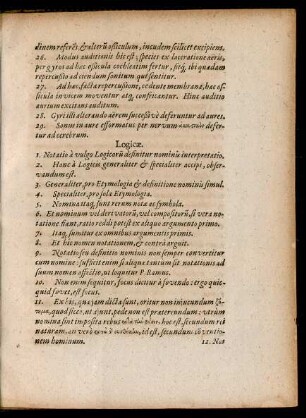 dinem referēs, & alterū ossiculum, incudem scilicet excipiens.
26. Modus auditionis hic est: species ex laceratione aeris,
per gyros ad hæc ossicula cochleatim fertur, fitq; ibi quædam
repercussio ad ciendum sonitum qui sentitur.
27. Ad hæc, facta repercussione, cedente membrana, hæc os-
sicula invicem moventur atq; confricantur. Hinc auditio
aurium excitans auditum.
28. Gyri illi alterando aërem successivè deferuntur ad aures.
29. Sonus in aure efformatus per nervum defer-
tur ad cerebrum.
Logicæ.
1. Notatio à vulgo Logicorū definitur nominis interpretatio.
2. Hanc à Logicis generaliter & specialiter accipi, obser-
vandum est.
3. Generaliter, pro Etymologia & definitione nominis simul.
4. Specialiter, pro sola Etymologia.
5. Nomina itaq; sunt rerum notæ et symbola.
6. Et nominum vel derivatorū, vel compositorū, si vera no-
tatione fiant, ratio reddi potest ex aliquo argumento primo.
7. Itaq; sumitur ex omnibus argumentis primis.
8. Et hic nomen notationem, & contrà arguit.
9. Notatio seu definitio nominis non semper convertitur
cum nomine: sufficit enim si aliquo tantùm sit notationis ad
suum nomen affectio, ut loquitur P. Ramus.
10. Non enim sequitur, focus dicitur à fovendo: ergo quic-
quid fovet, est focus.
11. Ex his, quæ jam dicta sunt, oritur non injucundum
quod sicet, ut ajunt, pede non est prætereundum: utrùm
nomina sint imposita rebus hoc est, secundum rei
naturam, an verò id est, secundum convento-
nem hominum.
12. Nos